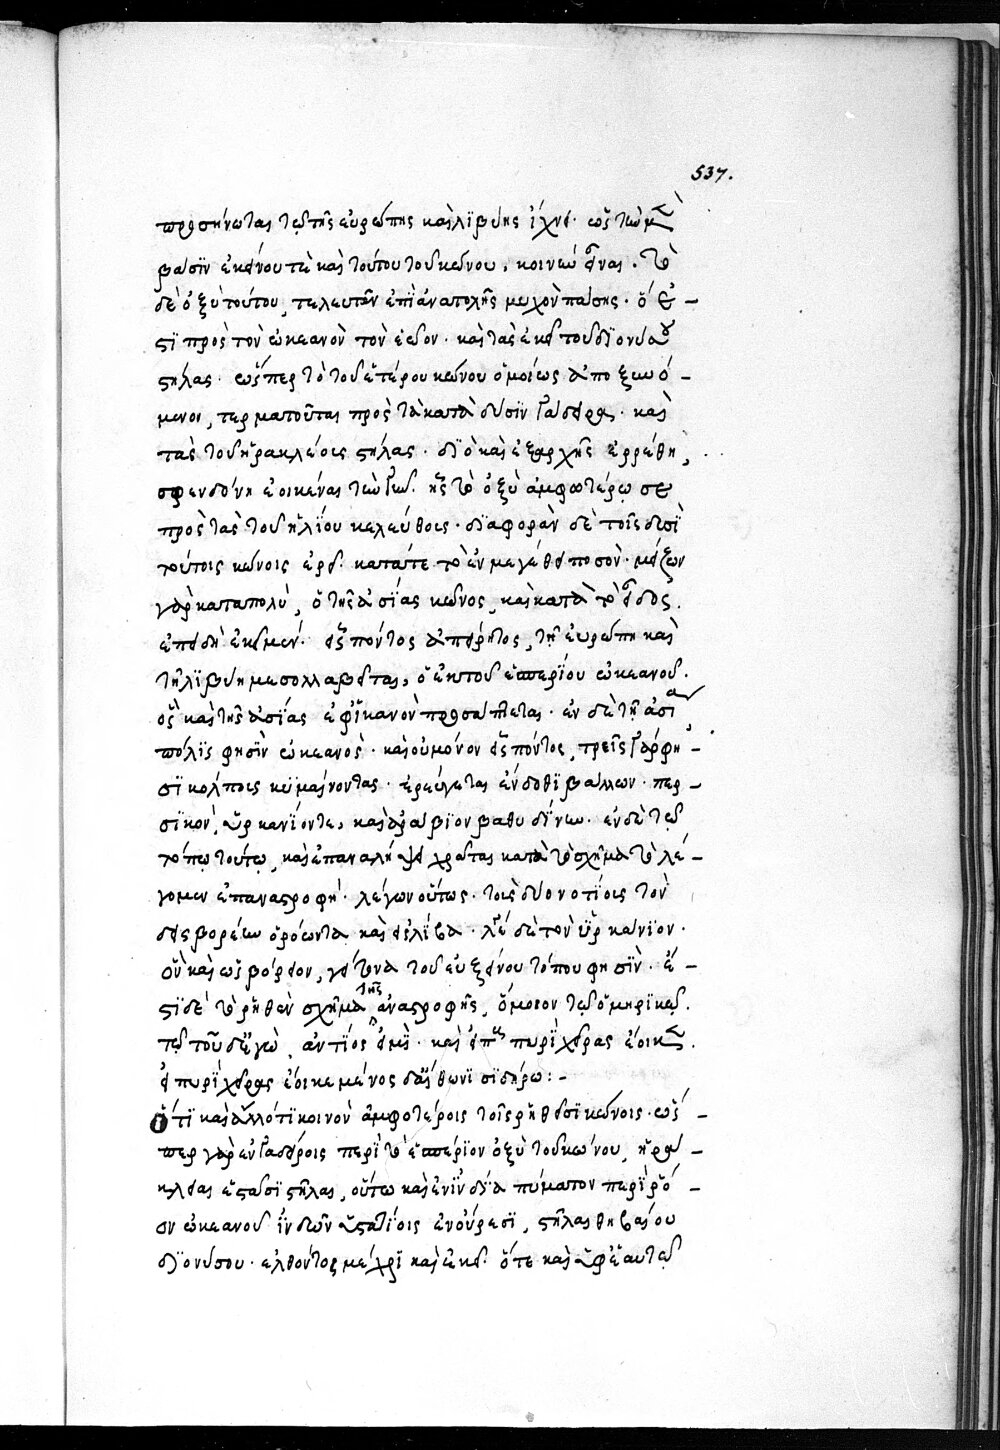 537.
προσηνῶσθαι τῷ τῆς εὐρώπης καὶ λιβύης ἴχνει· ὡς τὼ
βάσϊν ἐκείνου τὲ καὶ τούτου τοῦ κώνου, κοινὼ εἶναι. τὸ
δὲ ὀξὺ τούτου, τελευτᾶν ἐπὶ ἀνατολῆς μυχὸν πάσης· ὅ ἐ-
στϊ πρὸς τὸν ὠκεανὸν τὸν ἑῶον· καὶ τὰς ἐκεῖ τοῦ διονύσου
στήλας· ὥσπερ τὸ τοῦ ἑτέρου κώνου ὁμοίως ἀποξυνό-
μενοι, τερματοῦται πρὸς τὰ κατὰ δύσϊν γάδειρα· καὶ
τὰς τοῦ ἡρακλέους στήλας· διὸ καὶ ἐξαρχῆς ἐρρέθη,
σφενδόνη ἐοικέναι τὼ γῆν. ἧς τὸ ὀξὺ ἀμφωτέρω
πρὸς τὰς τοῦ ἡλίου κελεύθους· διαφορὰν δὲ τοῖς δυσϊ
τούτοις κώνοις ἐρεῖ κατά τε τὸ ἐν μεγέθει ποσὸν· μείζων
γὰρ καταπολὺ, ὁ τῆς ἀσίας κῶνος, καὶ κατὰ τὸ εἶδος.
ἐπειδὴ ἐκεῖ μὲν· εἷς πόντος ἀπείριτος, τῇ εὐρώπῃ καὶ
τῇ λιβύῃ μεσολλαβεῖται, ὁ ἐκ τοῦ ἑσπερίου ὠκεανοῦ.
ὃς καὶ τῆς ἀσίας ἐφ ἱκανὸν προσάπτεται· ἐν δὲ τῇ ἀσίᾳ
πολϊς φησὶν ὠκεανὸς· καὶ οὐ μόνον εἷς πόντος, τρεῖς γάρ φη-
σϊ κόλπους κυμαίνοντας· ἐρεύγεται ἔνδοθϊ βάλλων· περ-
σϊκόν, ὑρκανίόν τε, καὶ ἀράβϊον βαθυδίνων· ἐν δὲ τῷ
τόπῳ τούτῳ, καὶ ἐπαναλήψει χρᾶται κατὰ τὸ σχῆμα τὸ λε-
γομεν ἐπαναστροφή· λέγων οὕτως· τοὺς δύο νοτίους τὸν
δεῖς βορέω ὁρόωντα καὶ εἰς λίβα· λέγει δὲ τὸν ὑρκανϊον·
οὗ καὶ ὡς βόρειον, γείτονα τοῦ εὐξείνου τόπου φησϊν· ἔ-
στϊ δὲ τὸ ῥηθὲν σχῆμα τῆς ἀναστροφῆς, ὅμοιον τῷ ὁμηρϊκῷ.
τῷ τοῦ δ ἐγὼ, ἀντίος εἶμϊ· καὶ εἰ πυρὶ χεῖρας ἔοικε.
εἰ πυρὶ χεῖρας ἔοικε μένος δ αἴθωνι σϊδήρῳ:-
Ὅτϊ καὶ ἄλλό τϊ κοινὸν ἀμφοτέροις τοῖς ῥηθεῖσϊ κώνοις· ὥσ-
περ γὰρ ἐν γαδείροις περὶ τὸ ἑσπέρϊον ὀξὺ τοῦ κώνου, ἡρα-
κλέος ἑστᾶσϊ στῆλαι, οὕτω καὶ ἐν ἰνδίᾳ πύματον περὶ ῥό-
ον ὠκεανοῦ ἰνδῶν ὑστατίοις ἐν οὔρεσϊ, στῆλαι θηβαίου
διονύσου· ἐλθόντος μέχρϊ καὶ ἐκεῖ· ὅτε καὶ ὑφ ἑαυτῷ